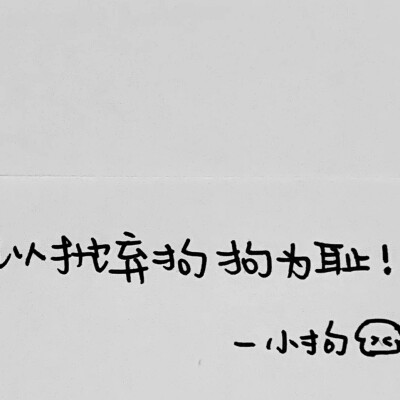 以抛弃狗狗为耻!
—小狗